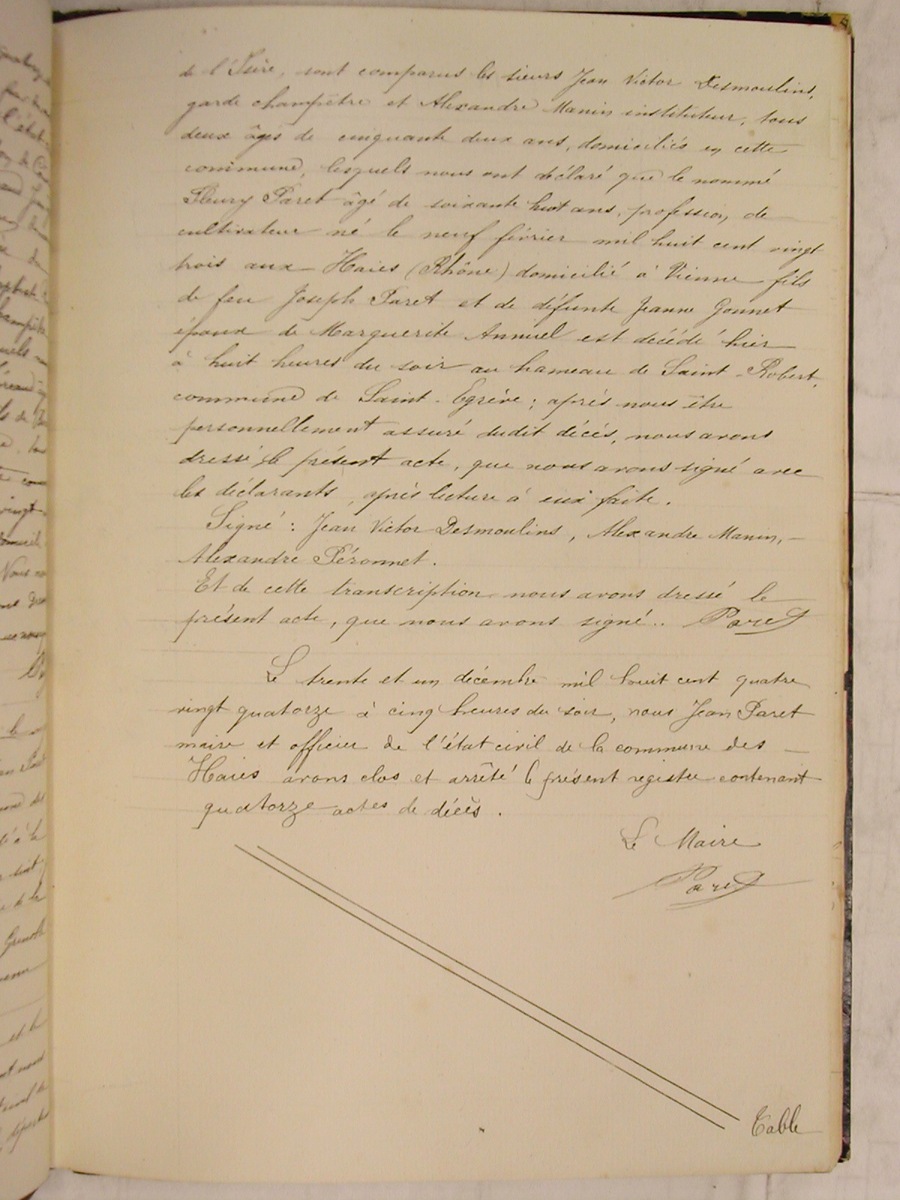 de l'Isère, sont comparus les sieurs Jean Victor Desmoulins,
garde champêtre et Alexandre Manin instituteur, tous
deux âgés de cinquante deux ans, domiciliés en cette
commune, lesquels nous ont déclaré que le nommé
Fleury Paret âgé de soixante huit ans, profession de
cultivateur né le neuf février mil huit cent vingt
trois aux Haies (Rhône) domicilié à Vienne fils
de feu Joseph Paret et de défunte Jeanne Gonnet
époux de Marguerite est décédé hier
à huit heures du soir au hameau de Saint-Robert,
commune de Saint-Egrève ; après nous être
personnellement assuré dudit décès, nous avons
dressé le présent acte, que nous avons signé avec
les déclarants, après lecture à eux faite.
Signé : Jean Victor Desmoulins, Alexandre Manin,
Alexandre Péronnet.
Et de cette transcription nous avons dressé le
présent acte, que nous avons signé. Paret
Le trente et un décembre mil huit cent quatre
vingt quatorze à cinq heures du soir, nous Jean Paret
maire et officier de l'état civil de la commune des
Haies avons clos et arrêté le présent registre contenant
quatorze actes de décès.
Le Maire
Paret
Table